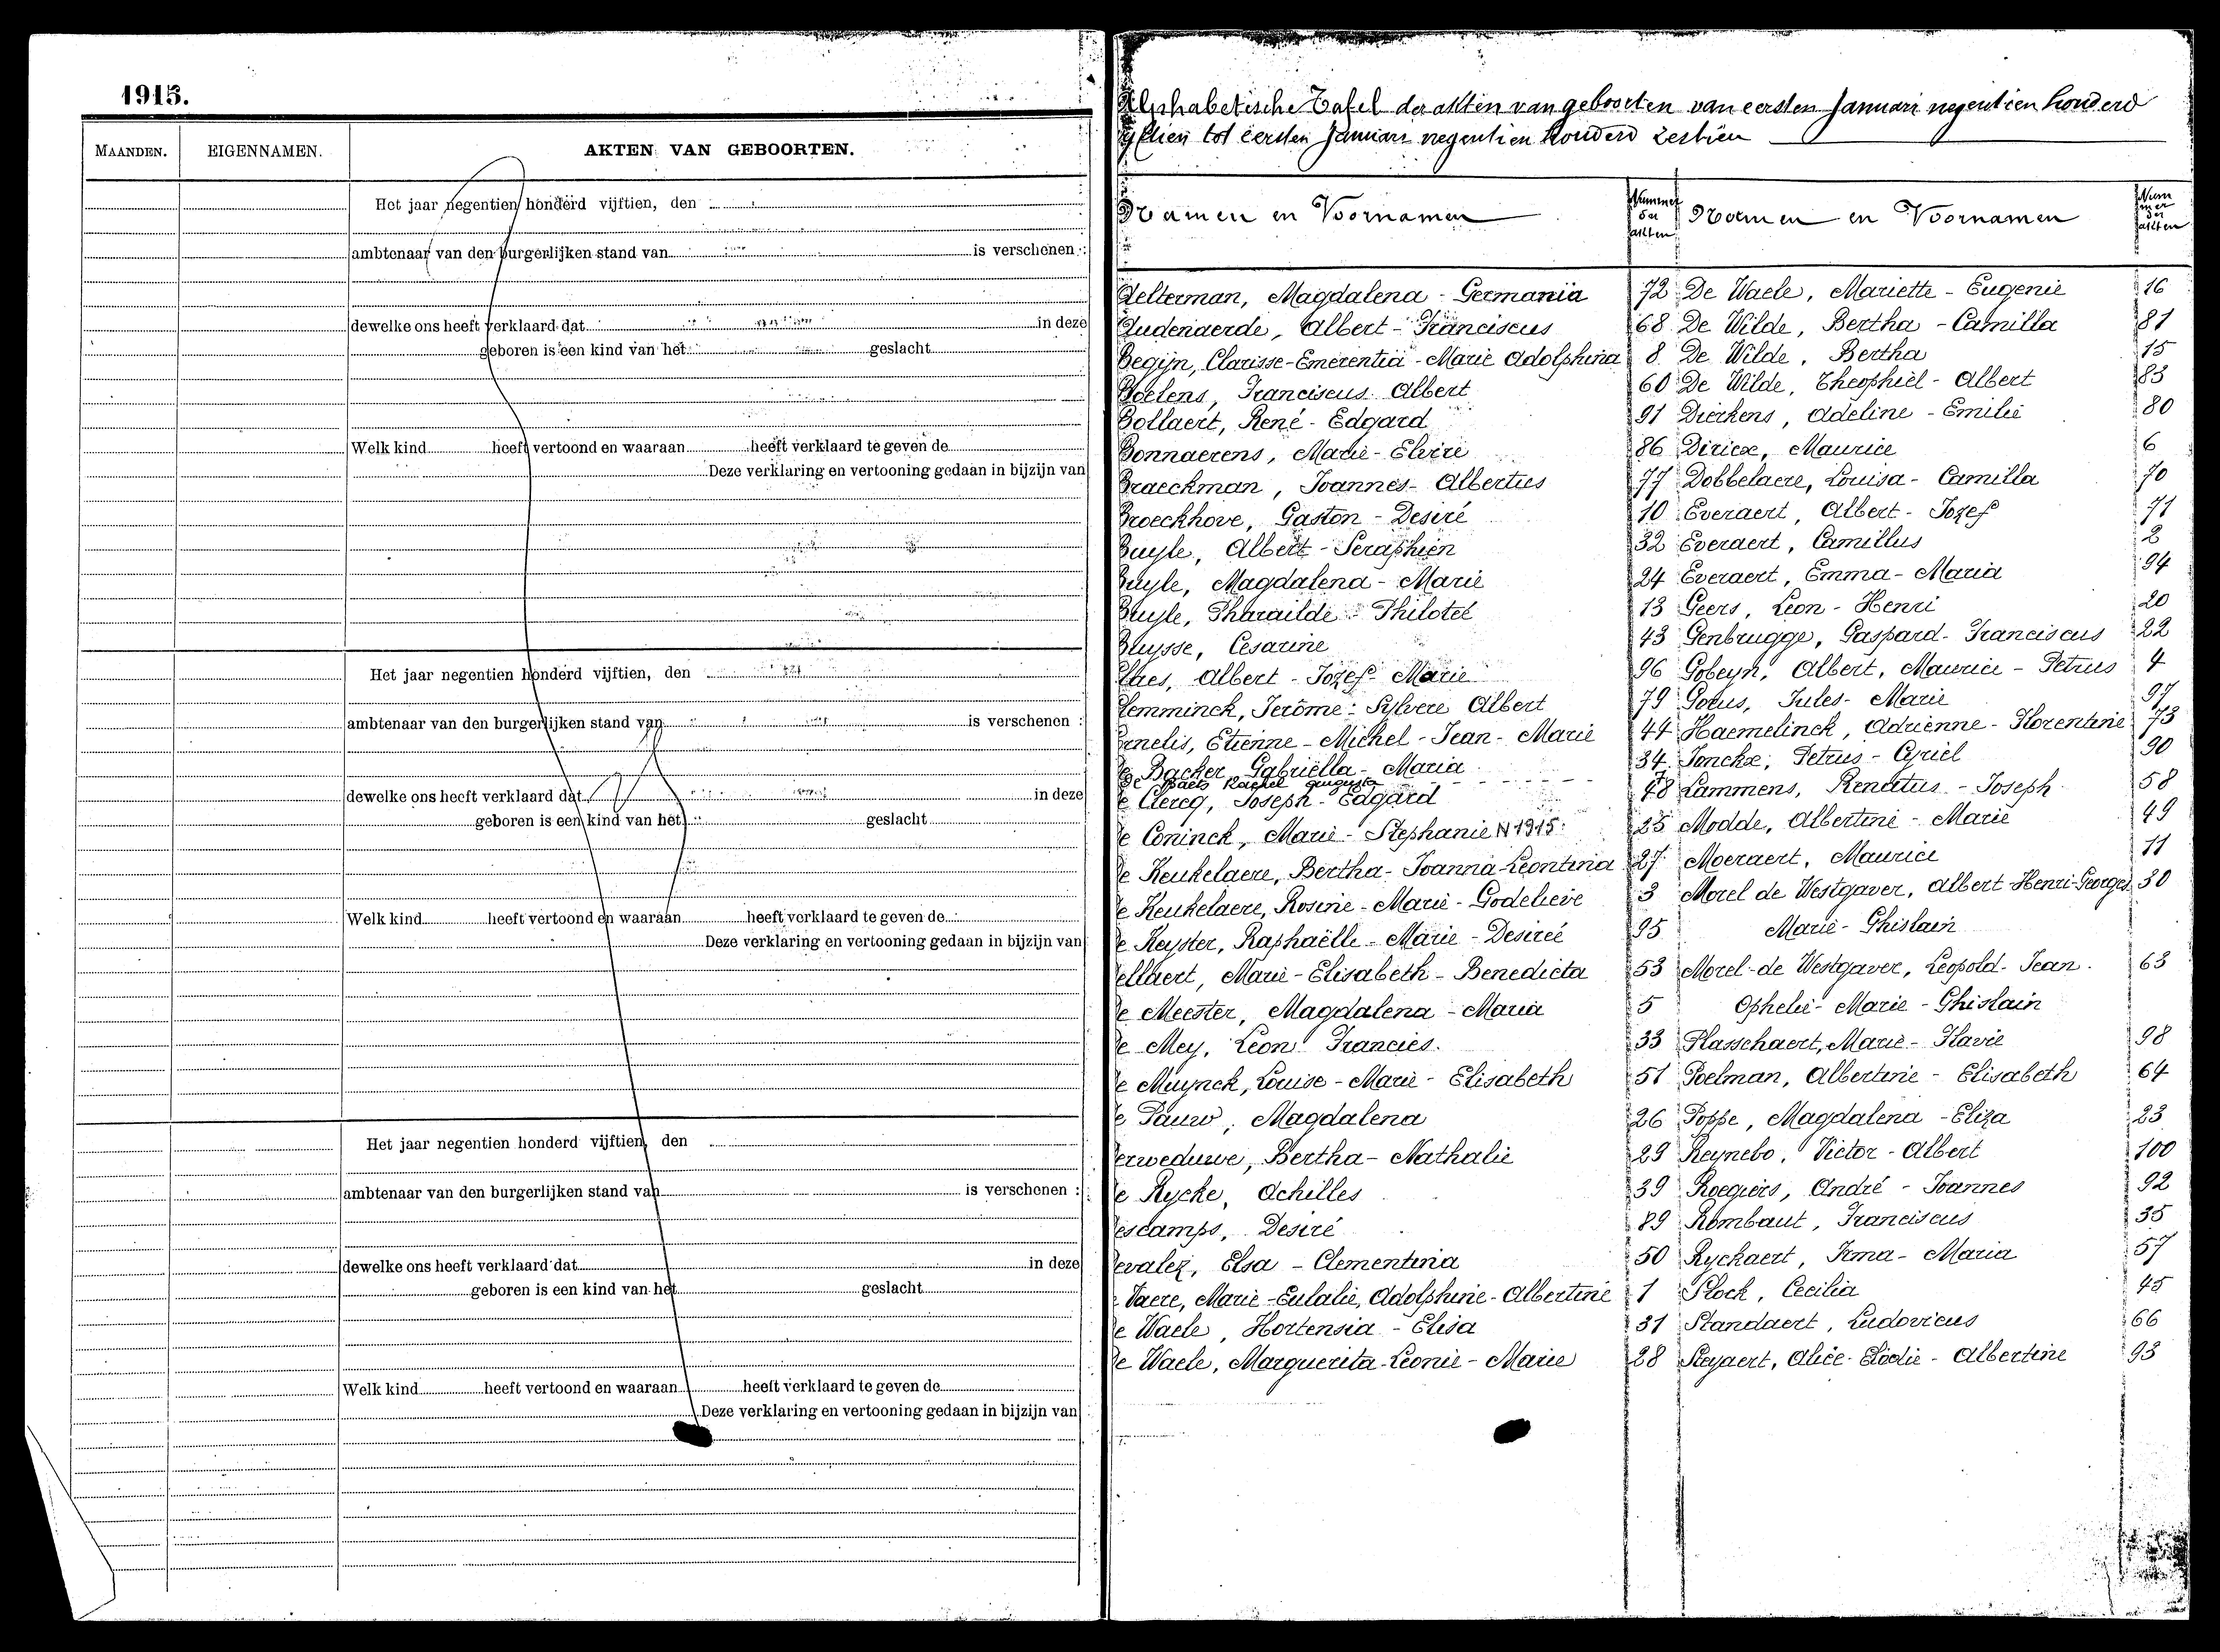 1915.
MAANDEN.
EIGENNAMEN.
AKTEN VAN GEBOORTEN.
Het jaar negentien honderd vijftien, den
ambtenaar van den burgerlijken stand van is verschenen :
dewelke ons heeft verklaard dat in deze
geboren is een kind van het geslacht
Welk kind heeft vertoond en waaraan heeft verklaard te geven de
Deze verklaring en vertooning gedaan in bijzijn van
Het jaar negentien honderd vijftien, den
ambtenaar van den burgerlijken stand van is verschenen :
dewelke ons heeft verklaard dat in deze
geboren is een kind van het geslacht
Welk kind heeft vertoond en waaraan heeft verklaard te geven de
Deze verklaring en vertooning gedaan in bijzijn van
Het jaar negentien honderd vijftien, den
ambtenaar van den burgerlijken stand van is verschenen :
dewelke ons heeft verklaard dat in deze
geboren is een kind van het geslacht
Welk kind heeft vertoond en waaraan heeft verklaard te geven de
Deze verklaring en vertooning gedaan in bijzijn van
Alphabetische Tafel der akten van geboorten van eersten Januari negentien honderd
yftien tot eersten Januari negentien honderd zestien
Namen en Voornamen
Nummer der akten
Aelterman, Magdalena - Germania 72
Audenaerde, Albert - Franciscus 68
Begijn, Clarisse-Emerentia - Marie Adolphina 8
Boelens, Franciscus Albert 60
Bollaert, René - Edgard 91
Bonnaerens, Marie - Elvire 86
Braeckman, Joannes - Albertus 77
Broeckhove, Gaston - Desiré 10
Buyle, Albert - Seraphien 32
Buyle, Magdalena - Marie 24
Buyle, Pharaïlde - Philoteé 13
Buysse, Cesarine 43
Claes, Albert - Jozef - Marie 96
Clemminck, Jerôme - Sylvere Albert 79
Cornelis, Etienne - Michel - Jean - Marie 44
De Backer Gabriëlla - Maria 34
De Baets Rachel Augusta
De Clercq, Joseph - Edgard 48
De Coninck, Marie - Stephanie N 1915 25
De Keukelaere, Bertha - Joanna - Leontina 27
De Keukelaere, Rosine - Marie - Godelieve 3
De Keyster, Raphaëlle - Marie - Desireé 95
Dellaert, Marie - Elisabeth - Benedicta 53
De Meester, Magdalena - Maria 5
De Mey, Leon Francies. 33
De Muynck, Louise - Marie - Elisabeth 51
De Pauw, Magdalena 26
Derweduwe, Bertha - Nathalie 29
De Rycke, Achilles 39
Descamps, Desiré 89
Devalez, Elsa - Clementina 50
De Vaere, Marie - Eulalie, Adolphine - Albertine 1
De Waele, Hortensia - Elisa 31
De Waele, Marguerita - Leonie - Marie 28
Namen en Voornamen
Nummer der akten
De Waele, Mariette - Eugenie 16
De Wilde, Bertha - Camilla 81
De Wilde, Bertha 15
De Wilde, Theophiel - Albert 83
Dierkens, Adeline - Emilie 80
Diricx, Maurice 6
Dobbelaere, Louisa - Camilla 70
Everaert, Albert - Jozef 71
Everaert, Camillus 2
Everaert, Emma - Maria 94
Geers, Leon - Henri 20
Genbrugge, Gaspard - Franciscus 22
Gobeyn, Albert, Maurice - Petrus 4
Gorus, Jules - Marie 97
Haemelinck, Adrienne - Florentine 73
Jonckx, Petrus - Cyriel 90
Lammens, Renatus - Joseph 58
Modde, Albertine - Marie 49
Moeraert, Maurice 11
Morel de Westgaver, Albert-Henri-Georges 30
Marie - Ghislain
Morel - de Westgaver, Leopold - Jean. 63
Ophelie - Marie - Ghislain
Plasschaert, Marie - Flavie 98
Poelman, Albertine - Elisabeth 64
Poppe, Magdalena - Eliza 23
Reynebo, Victor - Albert 100
Roegiers, André - Joannes 92
Rombaut, Franciscus 35
Ryckaert, Irma - Maria 57
Slock, Cecilia 45
Standaert, Ludovicus 66
Steyaert, Alice - Elodie - Albertine 93